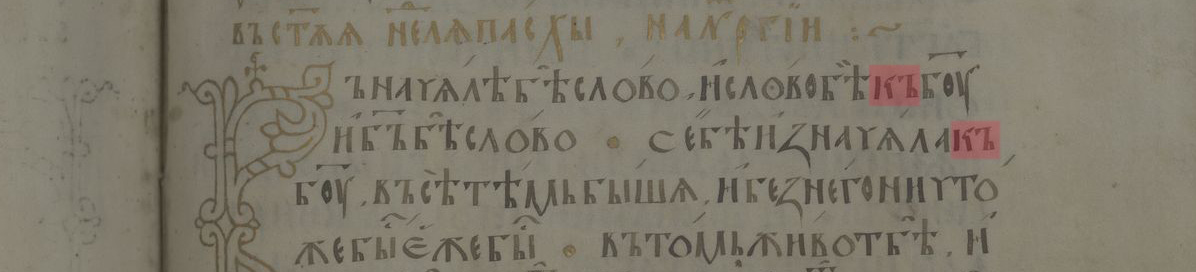 въ ст҃ѫѧ не҃лѧ пасхы , на лꙋ҃ргїи :~
Въ начѧлѣ бѣ слово , и слово бѣ къ бо҃у
и б҃ъ бѣ слово • се бѣ из начѧла къ
бо҃у , въсѣ тѣмь бышѧ , и без него ничто
же бы҃ еже бы҃ • въ томь живот бѣ , и